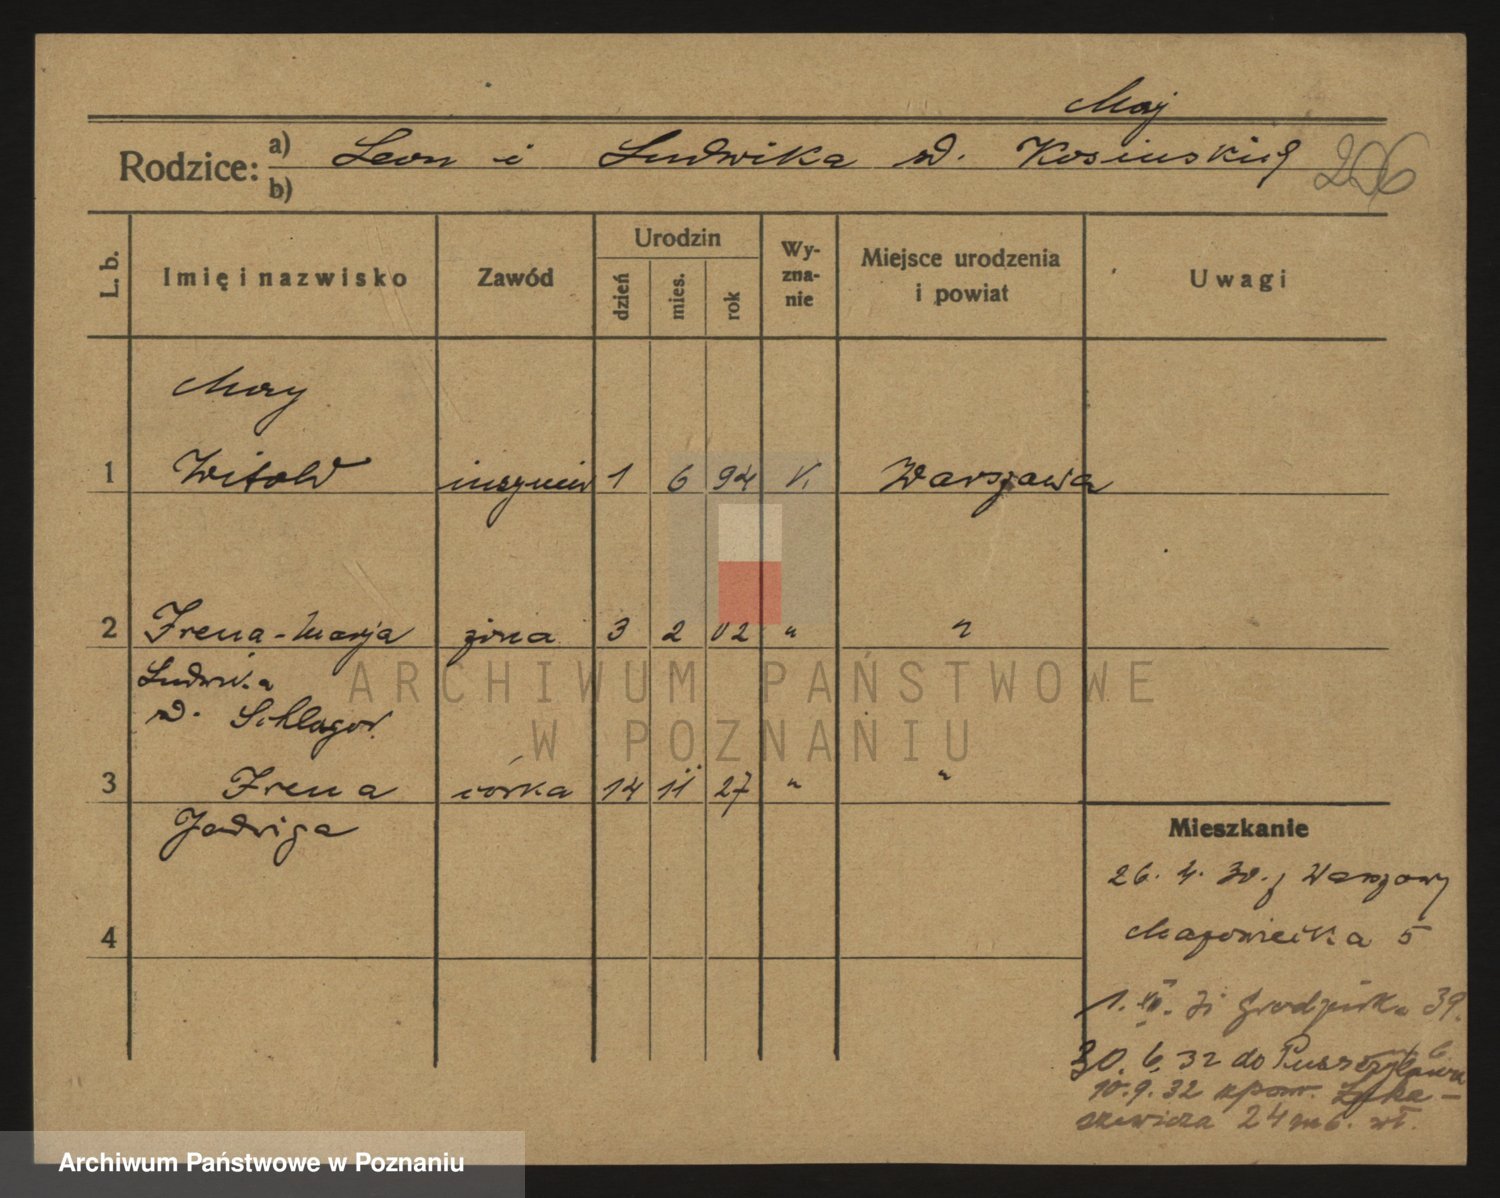 Maj
Rodzice: a) Leon i Ludwika z d. Kosińskich 296
b)
L. b. Imię i nazwisko Zawód Urodzin dzień mies. rok Wy-zna-nie Miejsce urodzenia i powiat Uwagi
May
1 Witold inżynier 1 6 94 k. Warszawa
2 Irena-Marja żona 3 2 02 " "
Ludwika
z d. Schlagor.
3 Irena córka 14 11 27 " "
Jadwiga
Mieszkanie
26. 4. 30. z Warszawy
4
Mazowiecka 5
1. 31 Grodziska 39.
30. 6. 32 do
10.9.32 Łuka-
szewicza 24 m 6.
ARCHIWUM PAŃSTWOWE
W POZNANIU
Archiwum Państwowe w Poznaniu